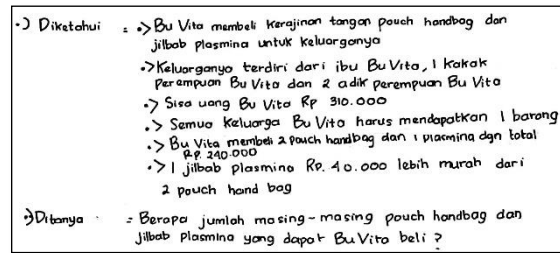 •) Diketahui = •> Bu Vita membeli kerajinan tangan pouch handbag dan
jilbab plasmina untuk keluarganya
•> Keluarganya terdiri dari ibu Bu Vita, 1 kakak
perempuan Bu Vita dan 2 adik perempuan Bu Vita
•> Sisa uang Bu Vita Rp 310.000
•> Semua keluarga Bu Vita harus mendapatkan 1 barang
•> Bu Vita membeli 2 pouch handbag dan 1 plasmina dgn total
RP. 240.000
•> 1 jilbab plasmina Rp. 40.000 lebih murah dari
2 pouch hand bag
•) Ditanya = Berapa jumlah masing-masing pouch handbag dan
jilbab plasmina yang dapat Bu Vita beli ?